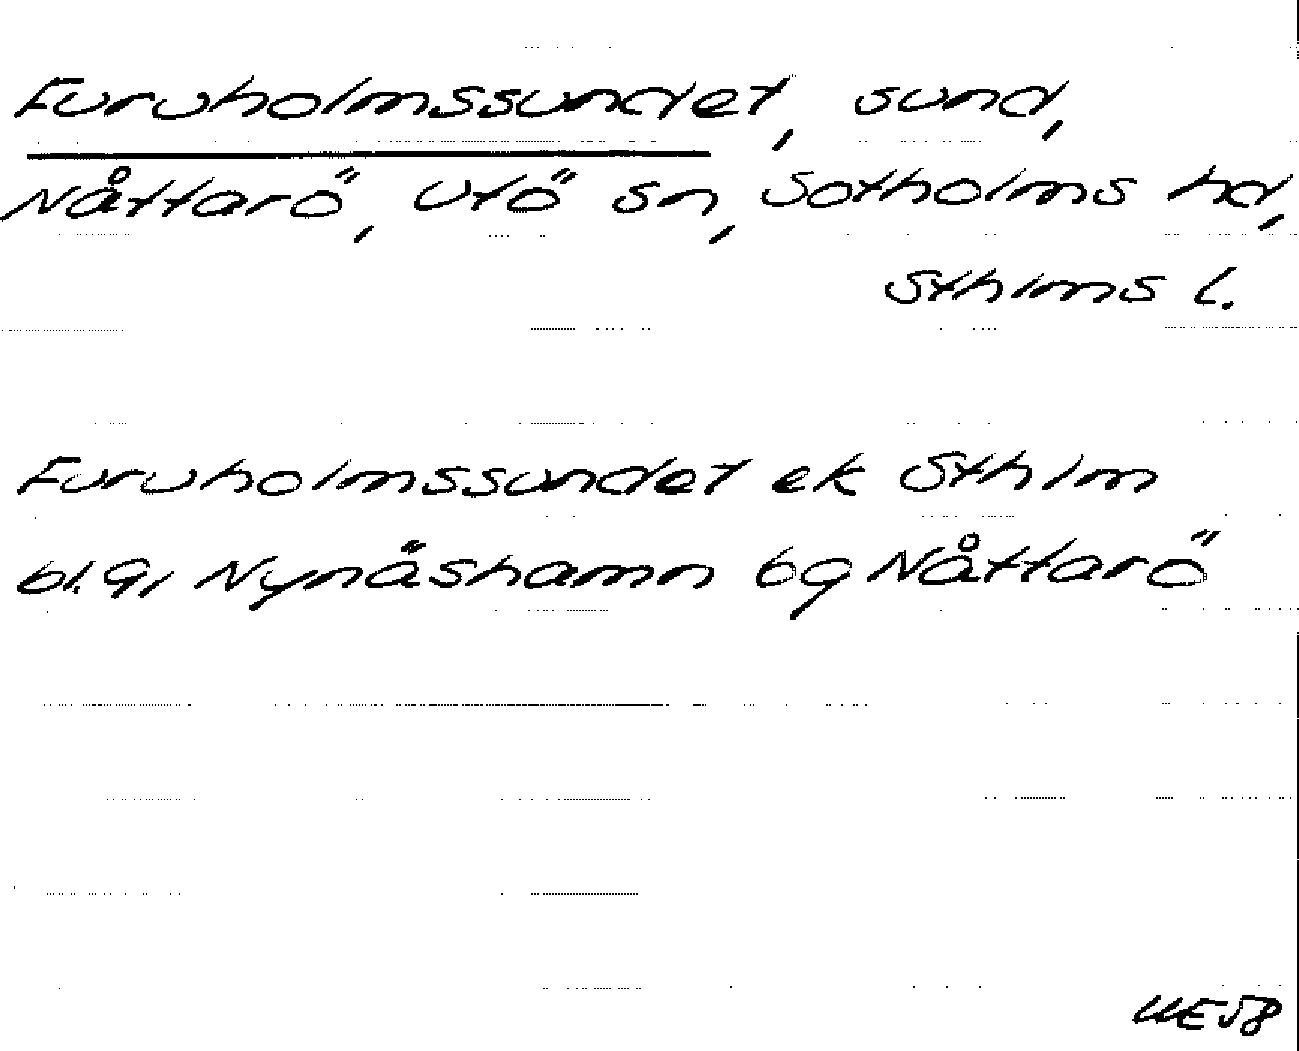 Furuholmssundet, sund,
Nåttarö, Utö sn, Sotholms hd,
Sthlms l.
Furuholmssundet ek Sthlm
bl. 9, Nynäshamn 69 Nåttarö